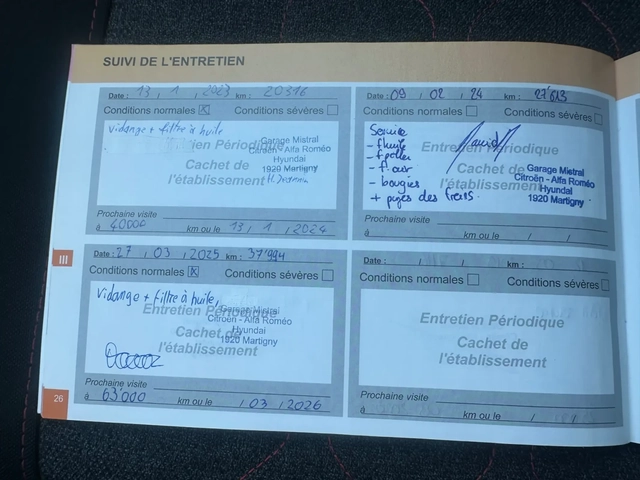 SUIVI DE L'ENTRETIEN
Date : 13 / 1 / 2023 km : 20316
Conditions normales ☒ Conditions sévères ☐
vidange + filtre à huile
Entretien Périodique
Cachet de
l'établissement
Garage Mistral
Citroën - Alfa Roméo
Hyundai
1920 Martigny
Prochaine visite
à 40000 km ou le 13 / 1 / 2024
Date : 09 / 02 / 24 km : 27'613
Conditions normales ☐ Conditions sévères ☐
Service
- f. huile
- f. pollen
- f. air
- bougies
+ purges des freins
Entretien Périodique
Cachet de
l'établissement
Garage Mistral
Citroën - Alfa Roméo
Hyundai
1920 Martigny
Prochaine visite
à km ou le / /
III
Date : 27 / 03 / 2025 km : 37'994
Conditions normales ☒ Conditions sévères ☐
Vidange + filtre à huile,
Entretien Périodique
Cachet de
l'établissement
Garage Mistral
Citroën - Alfa Roméo
Hyundai
1920 Martigny
Prochaine visite
à 63'000 km ou le / 03 / 2026
Date : / / km :
Conditions normales ☐ Conditions sévères ☐
Entretien Périodique
Cachet de
l'établissement
Prochaine visite
à km ou le / /
26